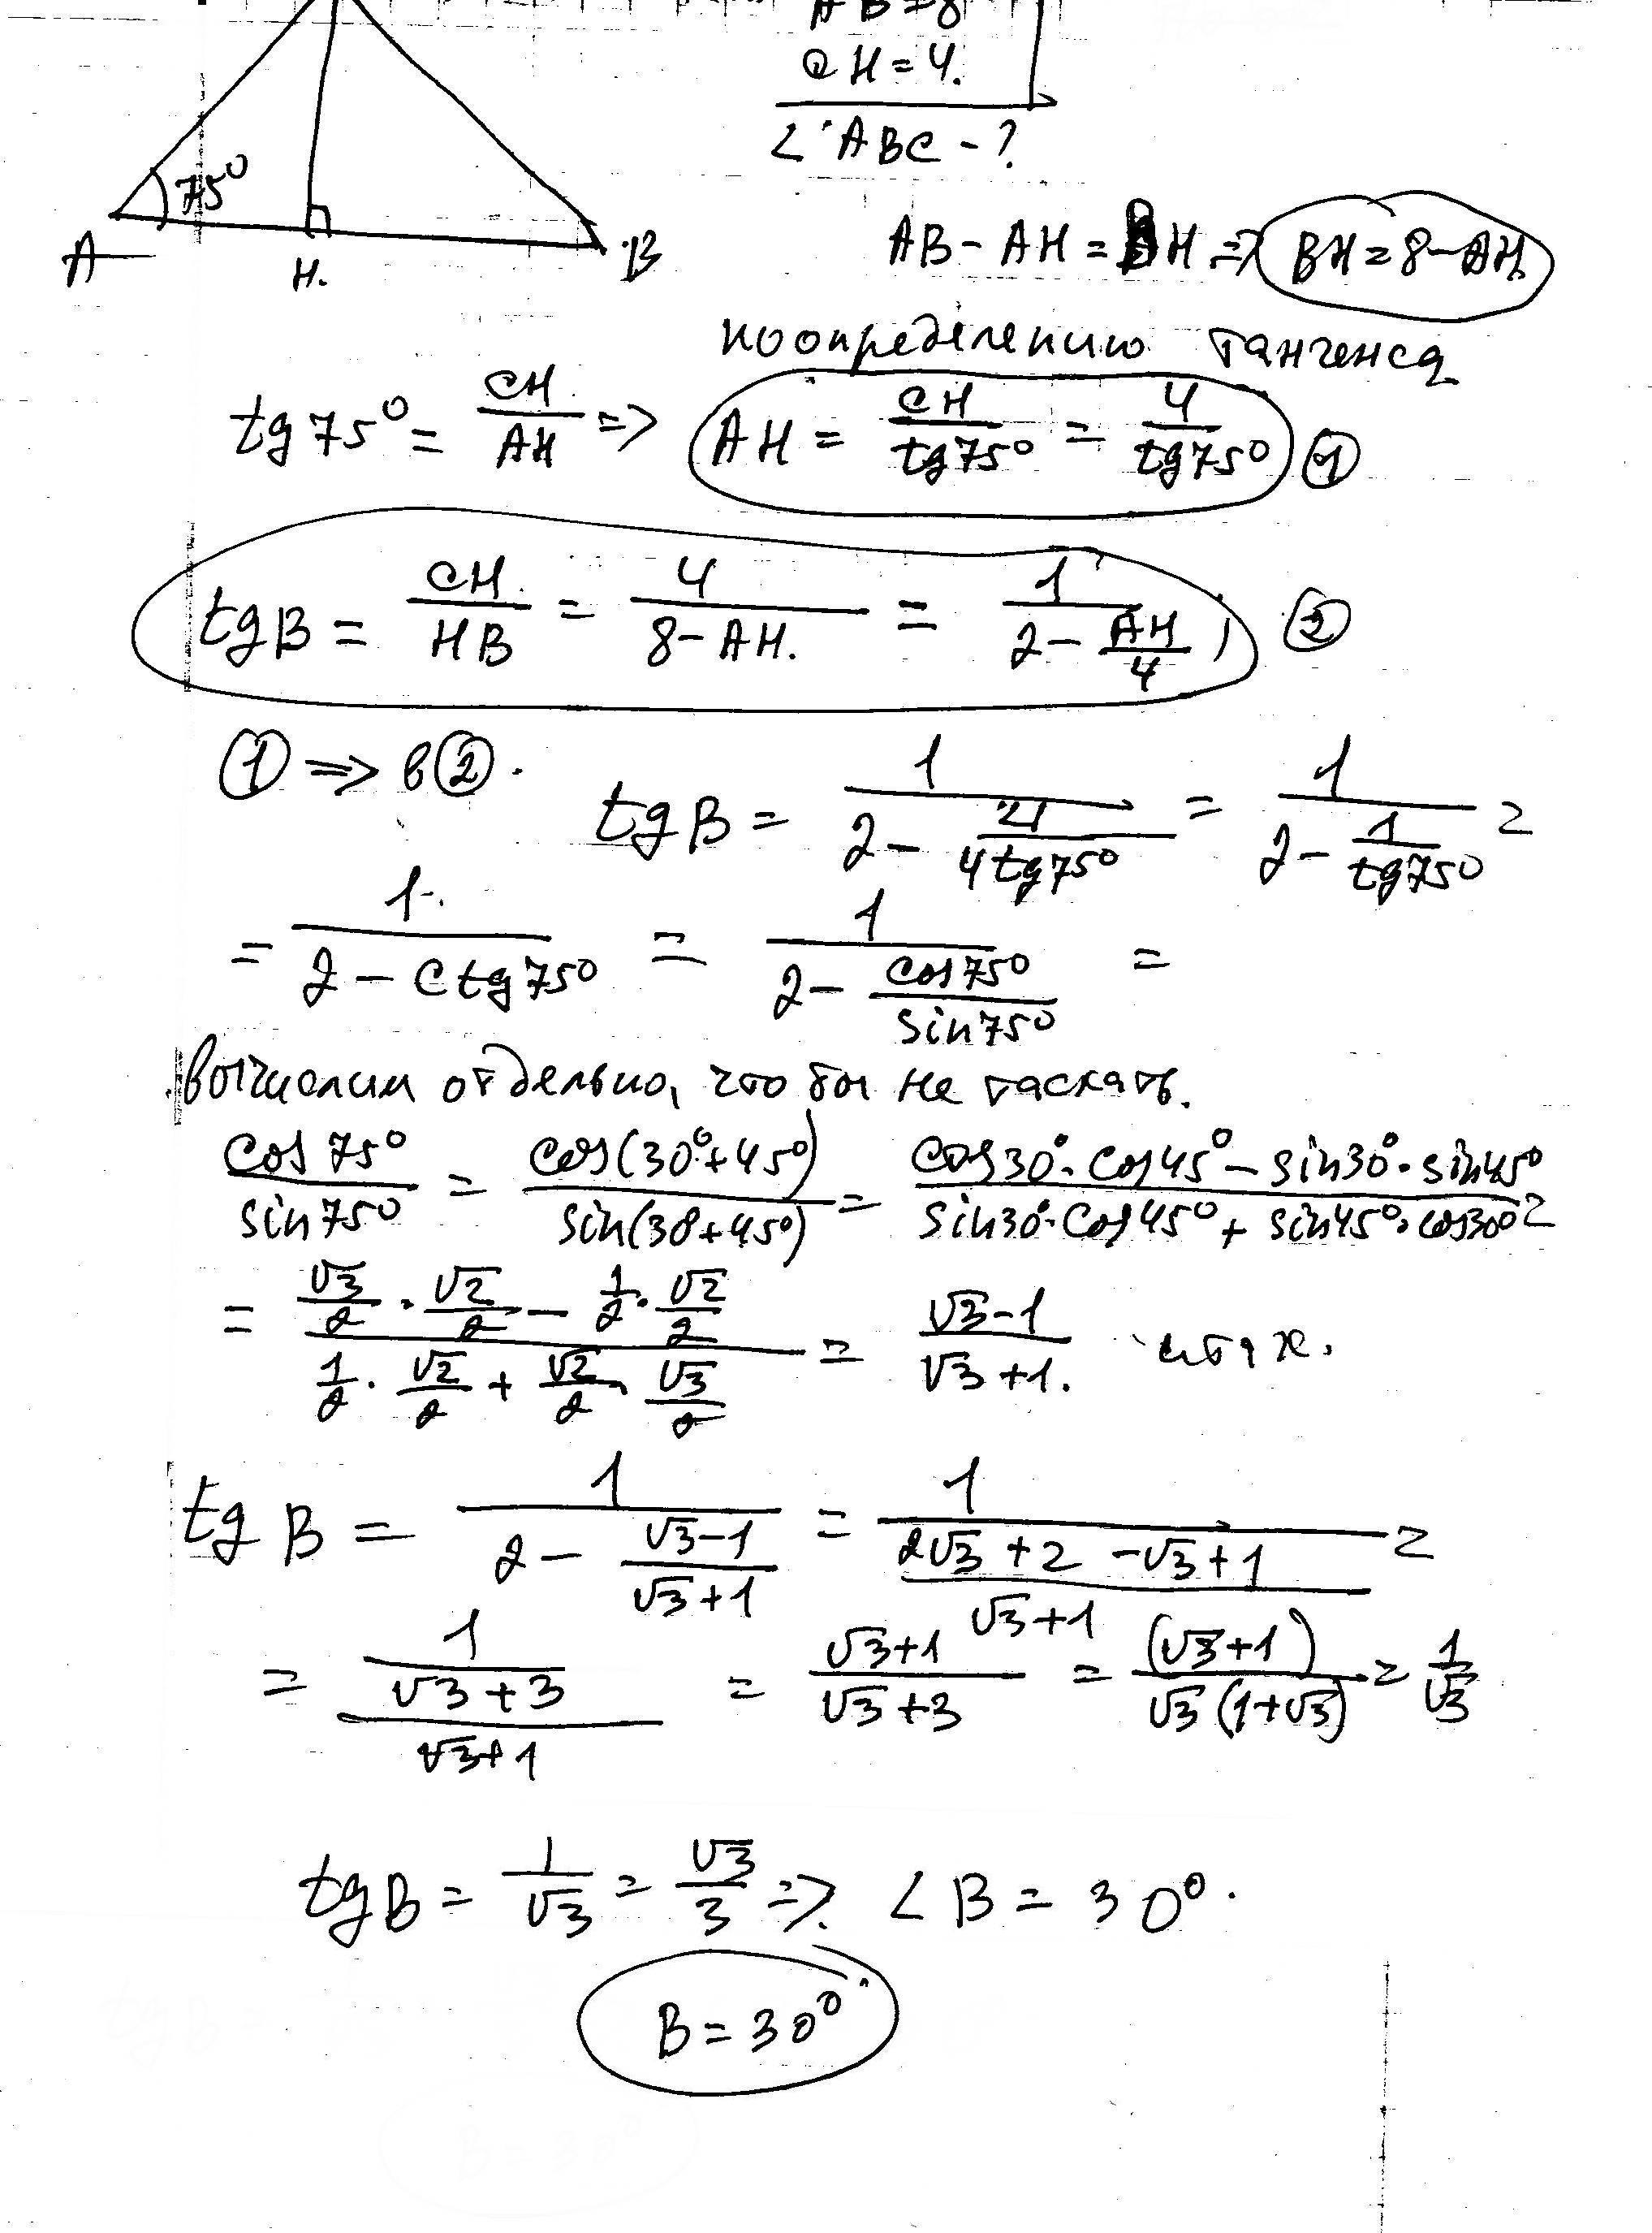 AB=8
CH=4.
∠ABC-?
75°
A H. B
AB-AH=BH=>BH=8-AH
по определению тангенса
tg75°= CH/AH => AH = CH/tg75° = 4/tg75° ①
tgB = CH/HB = 4/(8-AH) = 1/(2-AH/4) ②
① => в ②.
tgB = 1/(2-4/(4tg75°)) = 1/(2-1/tg75°) =
= 1/(2-ctg75°) = 1/(2-cos75°/sin75°) =
вычислим отдельно, что бы не таскать.
cos75°/sin75° = cos(30°+45°)/sin(30+45°) = (cos30°·cos45°-sin30°·sin45°)/(sin30°·cos45°+sin45°·cos30°) =
= (√3/2·√2/2-1/2·√2/2)/(1/2·√2/2+√2/2·√3/2) = (√3-1)/(√3+1). итак.
tgB = 1/(2-(√3-1)/(√3+1)) = 1/((2√3+2-√3+1)/(√3+1)) =
= 1/((√3+3)/(√3+1)) = (√3+1)/(√3+3) = (√3+1)/(√3(1+√3)) = 1/√3
tgB = 1/√3 = √3/3 => ∠B=30°.
B=30°